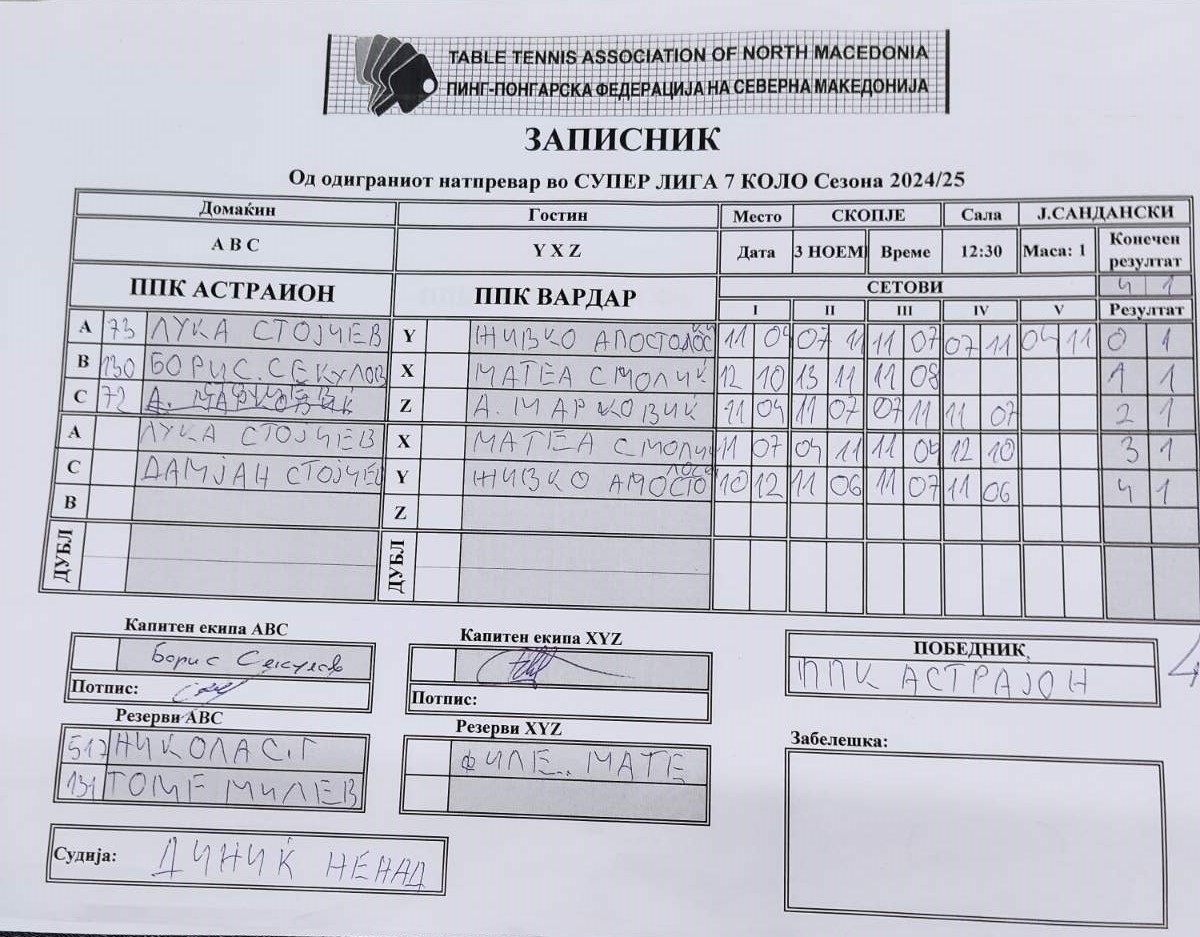 TABLE TENNIS ASSOCIATION OF NORTH MACEDONIA
ПИНГ-ПОНГАРСКА ФЕДЕРАЦИЈА НА СЕВЕРНА МАКЕДОНИЈА
ЗАПИСНИК
Од одиграниот натпревар во СУПЕР ЛИГА 7 КОЛО Сезона 2024/25
Домаќин Гостин Место СКОПЈЕ Сала Ј.САНДАНСКИ
A B C Y X Z Дата 3 НОЕМ Време 12:30 Маса: 1 Конечен резултат
ППК АСТРАИОН ППК ВАРДАР СЕТОВИ 4 1
I II III IV V Резултат
A 73 ЛУКА СТОЈЧЕВ Y ЖИВКО АПОСТОЛОСКИ 11 04 07 11 11 07 07 11 04 11 0 1
B 130 БОРИС.СЕКУЛОВ X МАТЕА СМОЛИЌ 12 10 13 11 11 08 1 1
C 72 Z А. МАРКОВИЌ 11 04 11 07 07 11 11 07 2 1
A ЛУКА СТОЈЧЕВ X МАТЕА СМОЛИЌ 11 07 04 11 11 04 12 10 3 1
C ДАМЈАН СТОЈЧЕВ Y ЖИВКО 10 12 11 06 11 07 11 06 4 1
B Z
ДУБЛ ДУБЛ
Капитен екипа ABC Капитен екипа XYZ ПОБЕДНИК
Борис Секулов ППК АСТРАЈОН 4
Потпис: Потпис:
Резерви ABC Резерви XYZ Забелешка:
517 НИКОЛА С.Г ФИЛЕ.. МАТЕ
131 ТОМЕ МИЛЕВ
Судија: ДИНИЌ НЕНАД